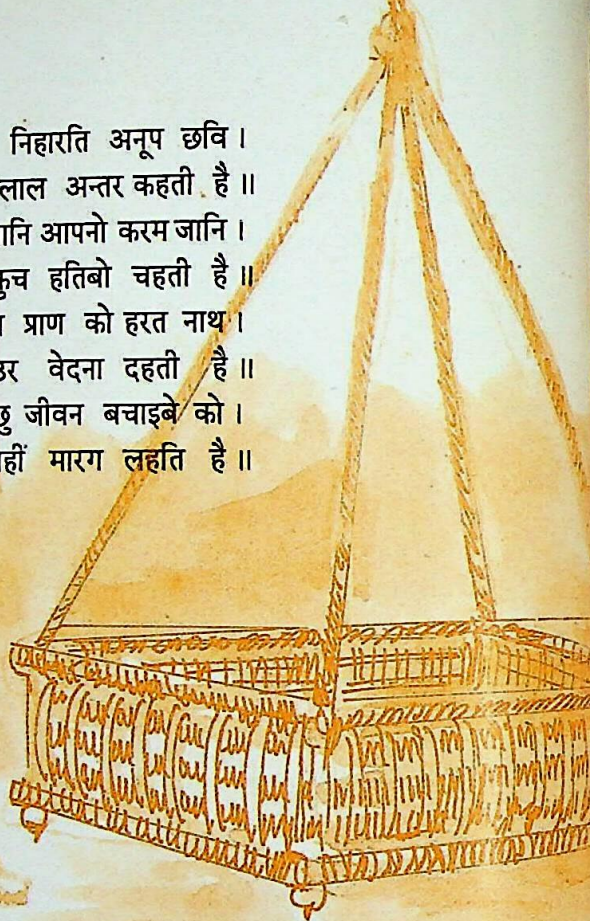 निहारति अनूप छवि।
लाल अन्तर कहती है॥
आपनो करम जानि।
हतिबो चहती है॥
प्राण को हरत नाथ।
वेदना दहती है॥
जीवन बचाइबे को।
मारग लहति है॥